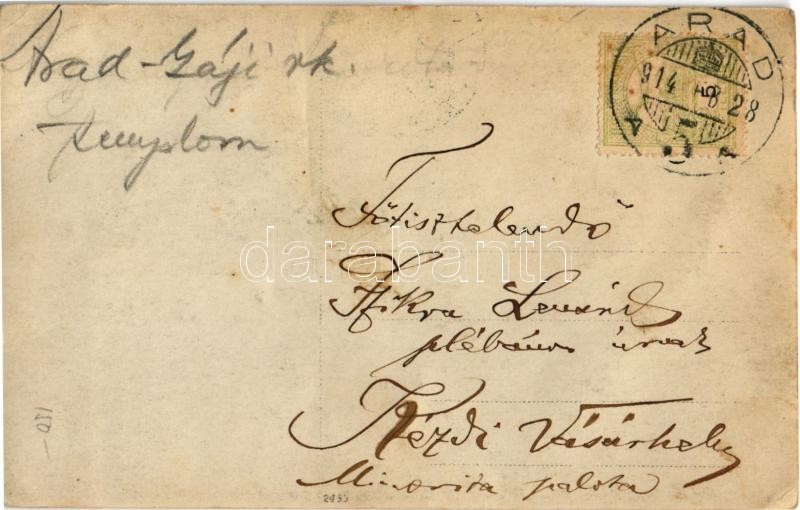 Arad-Gáji rk.
templom
ARAD
914 28
Főtisztelendő
Lenárd
plébános úrnak
Kézdi Vásárhely
Minorita palota
darabanth
2455